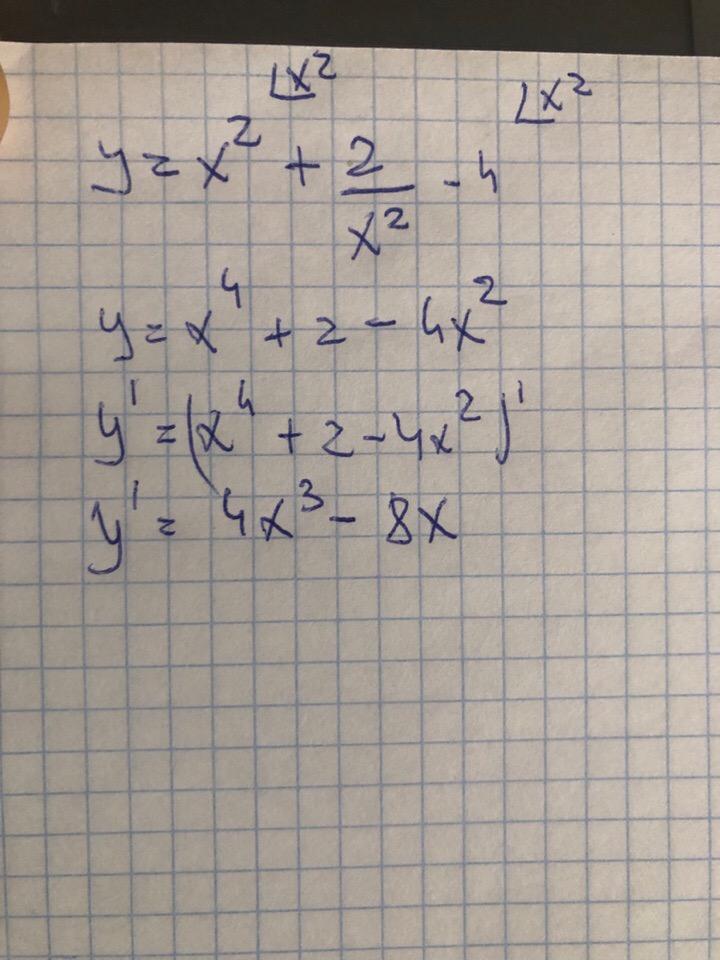 ⌊x² ⌊x²
y = x² + 2/x² - 4
y = x⁴ + 2 - 4x²
y' = (x⁴ + 2 - 4x²)'
y' = 4x³ - 8x